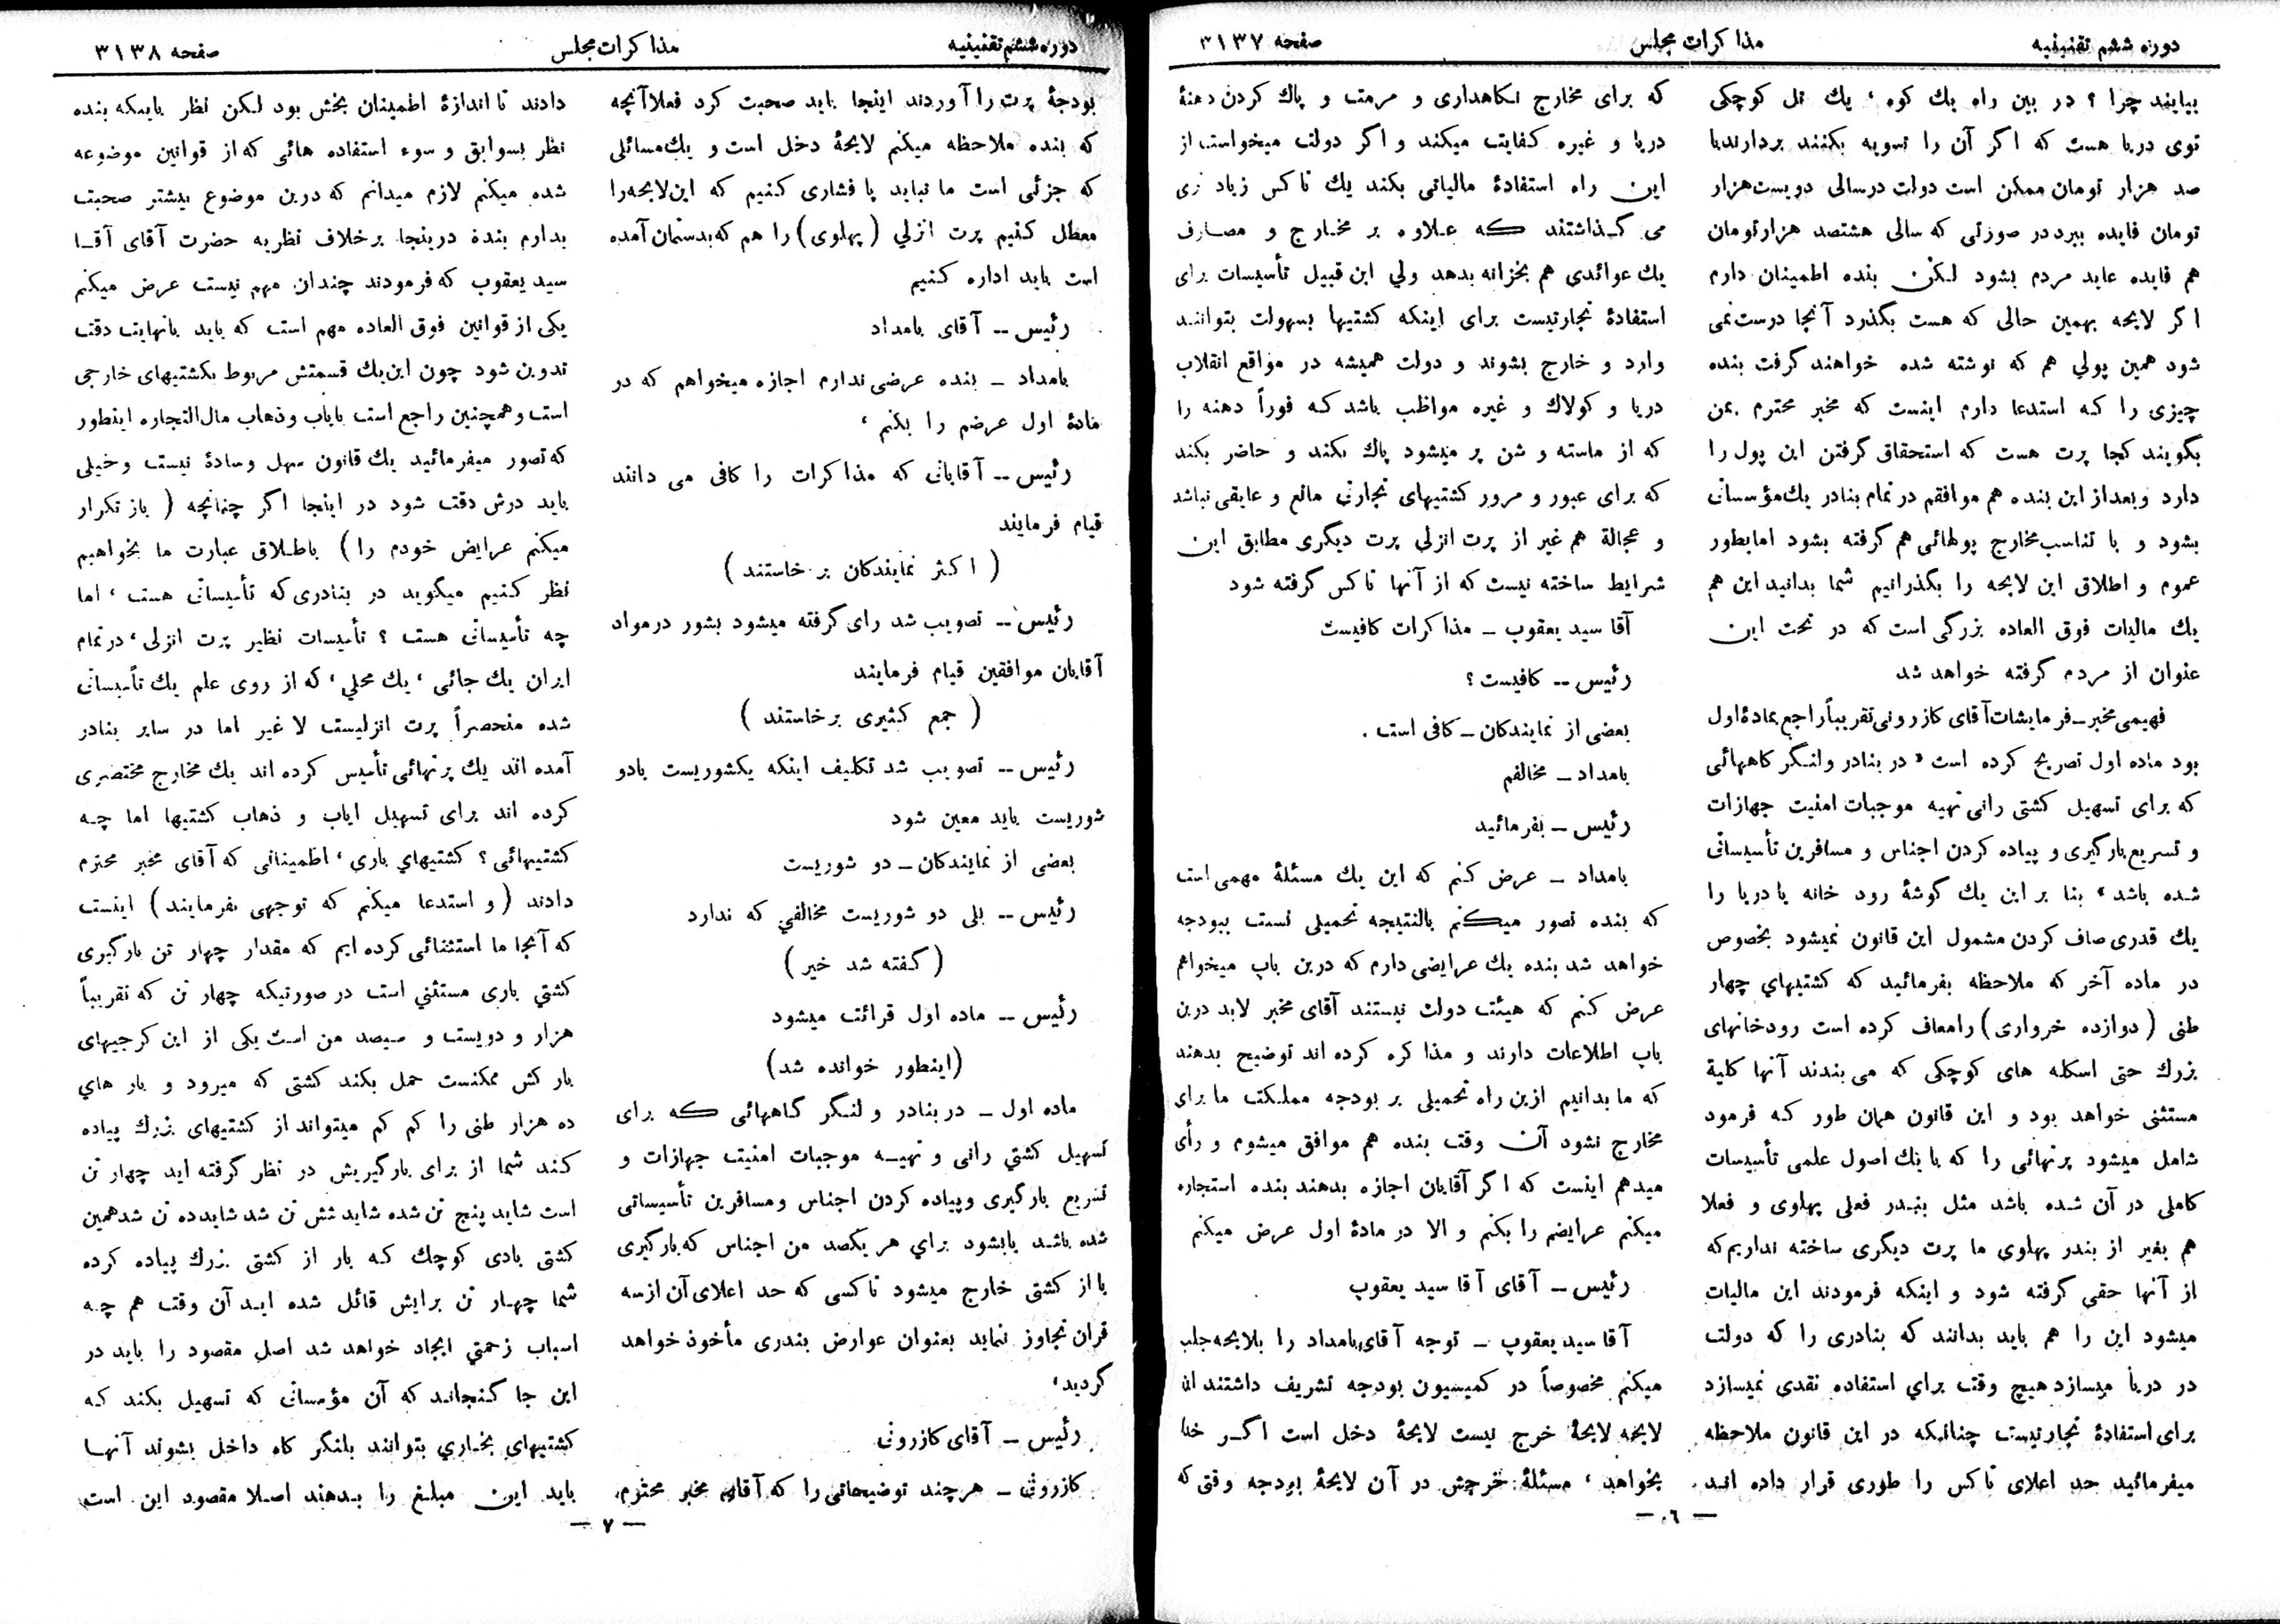 دوره ششم تقنینیه
مذاکرات مجلس
صفحه ۳۱۳۷
بیایند چرا ؟ در بین راه یك کوه ، یك تل کوچکی
توی دریا هست که اگر آن را تسویه بکنند بردارند با
صد هزار تومان ممکن است دولت در سالی دویست هزار
تومان فایده ببرد در صورتی که سالی هشتصد هزار تومان
هم فایده عاید مردم بشود لکن بنده اطمینان دارم
اگر لایحه بهمین حالی که هست بگذرد آنجا درست نمی
شود همین پولی هم که نوشته شده خواهند گرفت بنده
چیزی را که استدعا دارم اینست که مخبر محترم بمن
بگویند کجا پرت هست که استحقاق گرفتن این پول را
دارد و بعد از این بنده هم موافقم در تمام بنادر یك مؤسساتی
بشود و با تناسب مخارج پولهائی هم گرفته بشود اما بطور
عموم و اطلاق این لایحه را بگذرانیم شما بدانید این هم
یك مالیات فوق العاده بزرگی است که در تحت این
عنوان از مردم گرفته خواهد شد
فهیمی مخبر ـ فرمایشات آقای کازرونی تقریباً راجع بماده اول
بود ماده اول تصریح کرده است « در بنادر و لنگر گاههائی
که برای تسهیل کشتی رانی تهیه موجبات امنیت جهازات
و تسریع بارگیری و پیاده کردن اجناس و مسافرین تأسیساتی
شده باشد » بنا بر این یك گوشهٔ رود خانه یا دریا را
یك قدری صاف کردن مشمول این قانون نمیشود بخصوص
در ماده آخر که ملاحظه بفرمائید که کشتیهای چهار
طنی ( دوازده خرواری ) را معاف کرده است رودخانهای
بزرك حتی اسکله های کوچکی که می بندند آنها کلیة
مستثنی خواهد بود و این قانون همان طور که فرمود
شامل میشود پرتهائی را که با یك اصول علمی تأسیسات
کاملی در آن شده باشد مثل بندر فعلی پهلوی و فعلا
هم بغیر از بندر پهلوی ما پرت دیگری ساخته نداریم که
از آنها حقی گرفته شود و اینکه فرمودند این مالیات
میشود این را هم باید بدانند که بنادری را که دولت
در دریا میسازد هیچ وقت برای استفاده نقدی نمیسازد
برای استفادهٔ تجارتیست چنانکه در این قانون ملاحظه
میفرمائید حد اعلای تاکس را طوری قرار داده اند
که برای مخارج نگاهداری و مرمت و پاك کردن دهنهٔ
دریا و غیره کفایت میکند و اگر دولت میخواست از
این راه استفادهٔ مالیاتی بکند یك تاکس زیاد تری
می گذاشتند که علاوه بر مخارج و مصارف
یك عوائدی هم بخزانه بدهد ولی این قبیل تأسیسات برای
استفادهٔ تجارتیست برای اینکه کشتیها بسهولت بتوانند
وارد و خارج بشوند و دولت همیشه در مواقع انقلاب
دریا و کولاك و غیره مواظب باشد که فوراً دهنه را
که از ماسته و شن پر میشود پاك بکند و حاضر بکند
که برای عبور و مرور کشتیهای تجارتی مانع و عایقی نباشد
و عجالة هم غیر از پرت انزلی پرت دیگری مطابق این
شرایط ساخته نیست که از آنها تاکس گرفته شود
آقا سید یعقوب ـ مذاکرات کافیست
رئیس ـ کافیست ؟
بعضی از نمایندکان ـ کافی است .
بامداد ـ مخالفم
رئیس ـ بفرمائید
بامداد ـ عرض کنم که این یك مسئلهٔ مهمی است
که بنده تصور میکنم بالنتیجه تحمیلی نسبت ببودجه
خواهد شد بنده یك عرایضی دارم که درین باب میخواهم
عرض کنم که هیئت دولت نیستند آقای مخبر لابد درین
باب اطلاعات دارند و مذاکره کرده اند توضیح بدهند
که ما بدانیم ازین راه تحمیلی بر بودجه مملکت ما برای
مخارج نشود آن وقت بنده هم موافق میشوم و رأی
میدهم اینست که اگر آقایان اجازه بدهند بنده استجازه
میکنم عرایضم را بکنم و الا در مادهٔ اول عرض میکنم
رئیس ـ آقای آقا سید یعقوب
آقا سید یعقوب ـ توجه آقای بامداد را بلایحه جلب
میکنم مخصوصاً در کمیسیون بودجه تشریف داشتند
لایحه لایحهٔ خرج نیست لایحهٔ دخل است اگر خدا
بخواهد ، مسئلهٔ خرجش در آن لایحهٔ بودجه وقتی که
— ٦ —
دوره ششم تقنینیه
مذاکرات مجلس
صفحه ۳۱۳۸
بودجهٔ پرت را آوردند اینجا باید صحبت کرد فعلا آنچه
که بنده ملاحظه میکنم لایحهٔ دخل است و یك مسائلی
که جزئی است ما نباید پا فشاری کنیم که این لایحه را
معطل کنیم پرت انزلی ( پهلوی ) را هم که بدستمان آمده
است باید اداره کنیم
رئیس ـ آقای بامداد
بامداد ـ بنده عرضی ندارم اجازه میخواهم که در
مادهٔ اول عرضم را بکنم ،
رئیس ـ آقایانی که مذاکرات را کافی می دانند
قیام فرمایند
( اکثر نمایندکان بر خاستند )
رئیس ـ تصویب شد رای گرفته میشود بشور در مواد
آقایان موافقین قیام فرمایند
( جمع کثیری برخاستند )
رئیس ـ تصویب شد تکلیف اینکه یکشوریست یا دو
شوریست باید معین شود
بعضی از نمایندکان ـ دو شوریست
رئیس ـ بلی دو شوریست مخالفی که ندارد
( گفته شد خیر )
رئیس ـ ماده اول قرائت میشود
(اینطور خوانده شد)
ماده اول ـ در بنادر و لنگر گاههائی که برای
تسهیل کشتی رانی و تهیه موجبات امنیت جهازات و
تسریع بارگیری و پیاده کردن اجناس و مسافرین تأسیساتی
شده باشد یا بشود برای هر یکصد من اجناس که بارگیری
یا از کشتی خارج میشود تاکسی که حد اعلای آن از سه
قران تجاوز ننماید بعنوان عوارض بندری مأخوذ خواهد
گردید ،
رئیس ـ آقای کازرونی
کازرونی ـ هر چند توضیحاتی را که آقای مخبر محترم
دادند تا اندازهٔ اطمینان بخش بود لکن نظر باینکه بنده
نظر بسوابق و سوء استفاده هائی که از قوانین موضوعه
شده میکنم لازم میدانم که درین موضوع بیشتر صحبت
بدارم بنده درینجا بر خلاف نظریه حضرت آقای آقا
سید یعقوب که فرمودند چندان مهم نیست عرض میکنم
یکی از قوانین فوق العاده مهم است که باید با نهایت دقت
تدوین شود چون این یك قسمتش مربوط بکشتیهای خارجی
است و همچنین راجع است بایاب و ذهاب مال التجاره اینطور
که تصور میفرمائید یك قانون سهل و سادهٔ نیست و خیلی
باید درش دقت شود در اینجا اگر چنانچه ( باز تکرار
میکنم عرایض خودم را ) باطلاق عبارت ما بخواهیم
نظر کنیم میگوید در بنادری که تأسیساتی هست ، اما
چه تأسیساتی هست ؟ تأسیسات نظیر پرت انزلی ، در تمام
ایران یك جائی ، یك محلی ، که از روی علم یك تأسیساتی
شده منحصراً پرت انزلیست لا غیر اما در سایر بنادر
آمده اند یك پرتهائی تأسیس کرده اند یك مخارج مختصری
کرده اند برای تسهیل ایاب و ذهاب کشتیها اما چه
کشتیهائی ؟ کشتیهای باری ، اطمینانی که آقای مخبر محترم
دادند ( و استدعا میکنم که توجهی بفرمایند ) اینست
که آنجا ما استثنائی کرده ایم که مقدار چهار تن بارگیری
کشتی باری مستثنی است در صورتیکه چهار تن که تقریباً
هزار و دویست و سیصد من است یکی از این کرجیهای
بار کش ممکنست حمل بکند کشتی که میرود و بار های
ده هزار طنی را کم کم میتواند از کشتیهای بزرك پیاده
کند شما از برای بارگیریش در نظر گرفته اید چهار تن
است شاید پنج تن شده شاید شش تن شد شاید ده تن شد همین
کشتی بادی کوچك که بار از کشتی بزرك پیاده کرده
شما چهار تن برایش قائل شده اید آن وقت هم چه
اسباب زحمتی ایجاد خواهد شد اصل مقصود را باید در
این جا گنجاند که آن مؤسساتی که تسهیل بکند که
کشتیهای بخاری بتوانند بلنگر گاه داخل بشوند آنها
باید این مبلغ را بدهند اصلا مقصود این است
— ۷ —